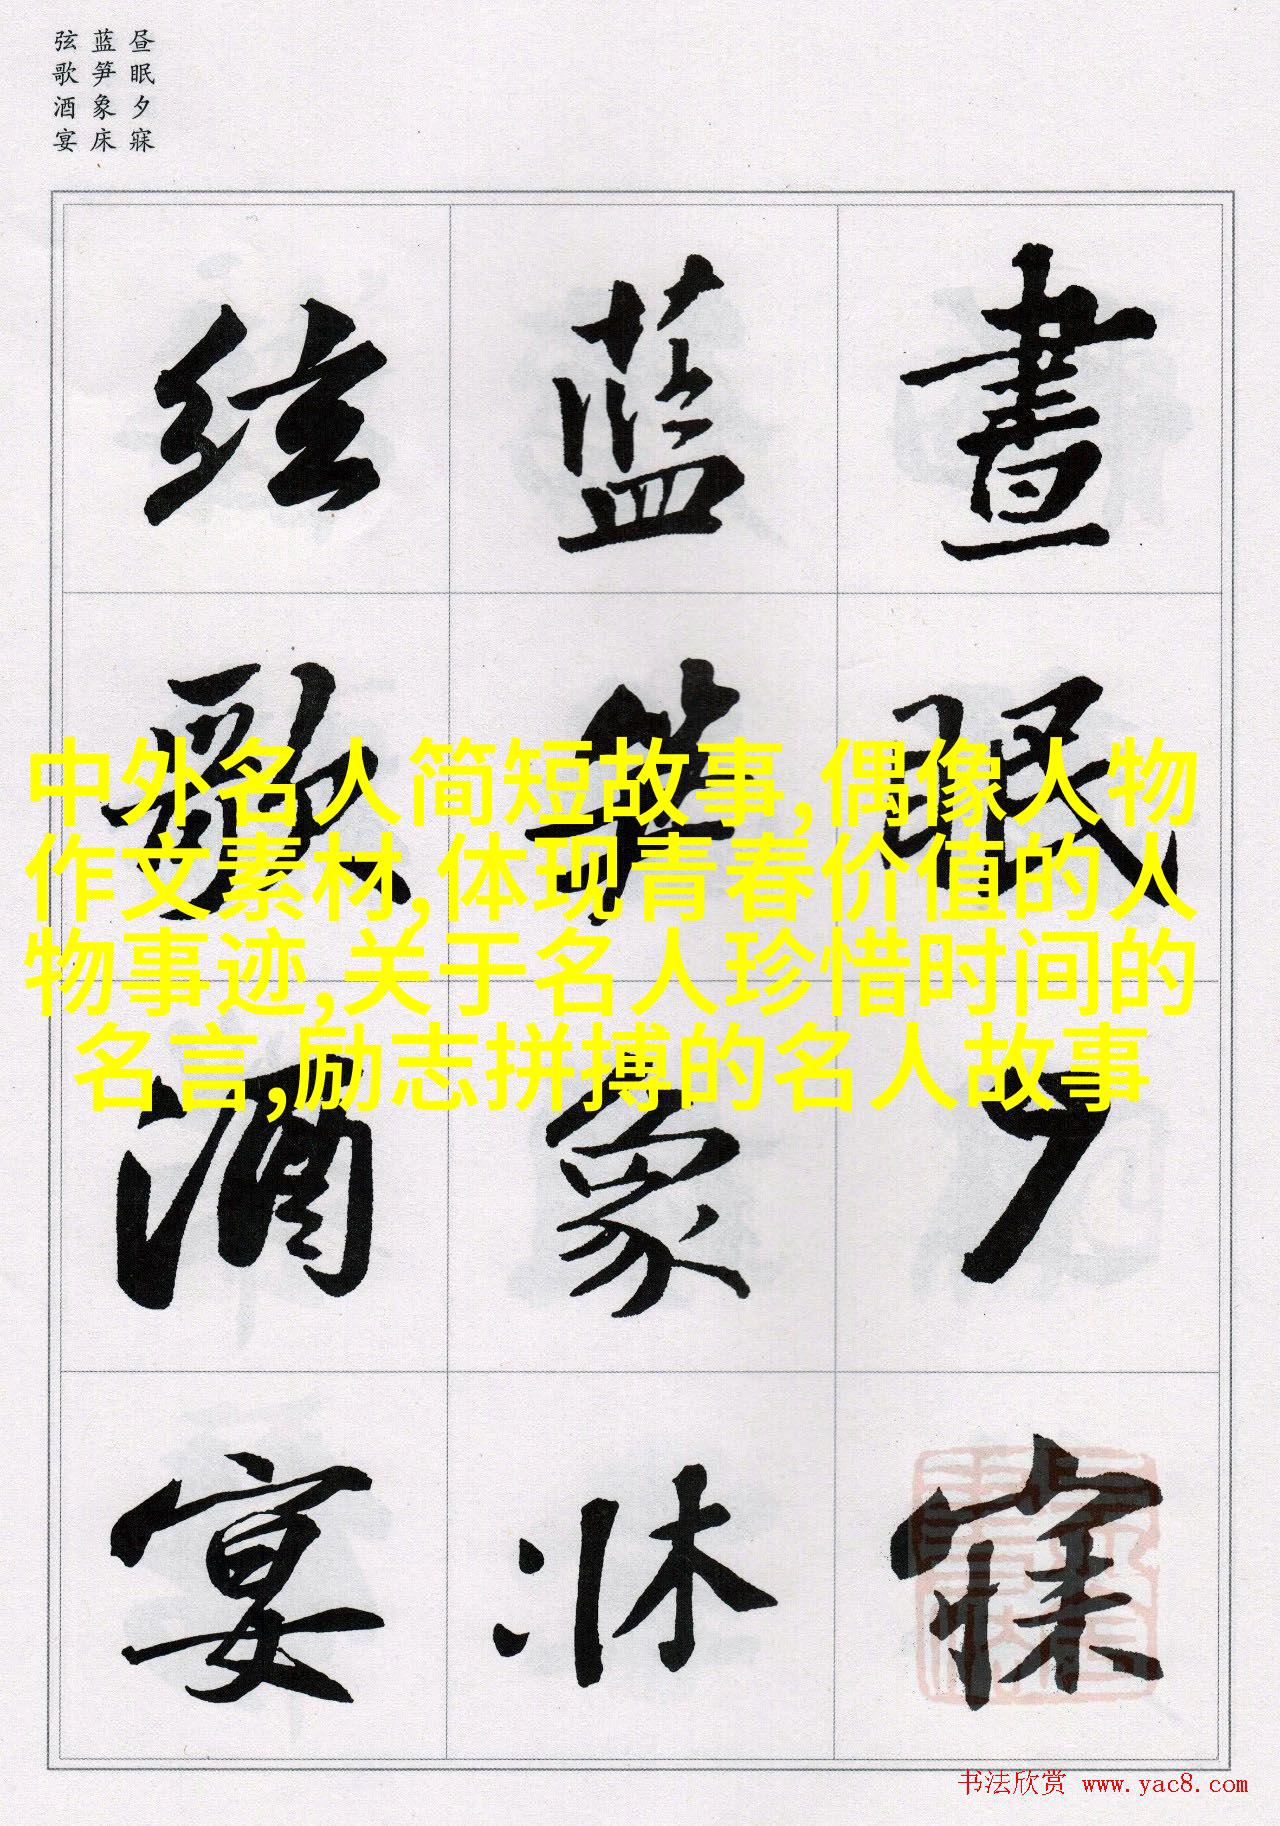 昼眠夕寐
蓝笋象床
弦歌酒宴
晝眠夕寐
藍笋象牀
絃歌酒宴
中外名人简短故事,偶像人物
作文素材,体现青春价值的人
物事迹,关于名人珍惜时间的
名言,励志拼搏的名人故事
书法欣赏 www.yac8.com